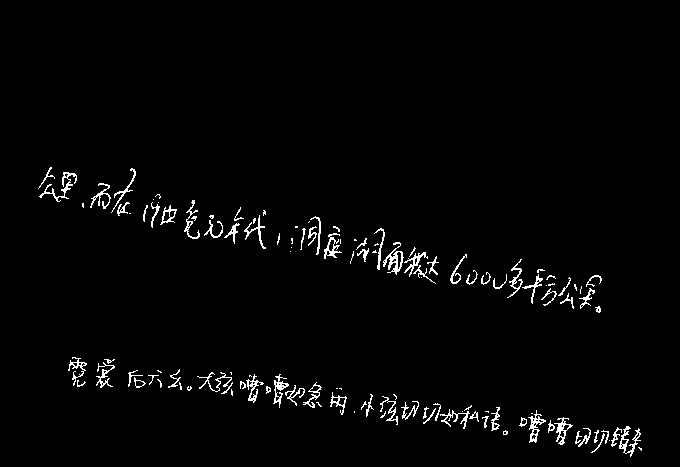 公里,而在19世竟30年代,洞庭湖面积达6000多平方公里。
霓裳后六幺。大弦嘈嘈如急雨,小弦切切如私语。嘈嘈切切错杂